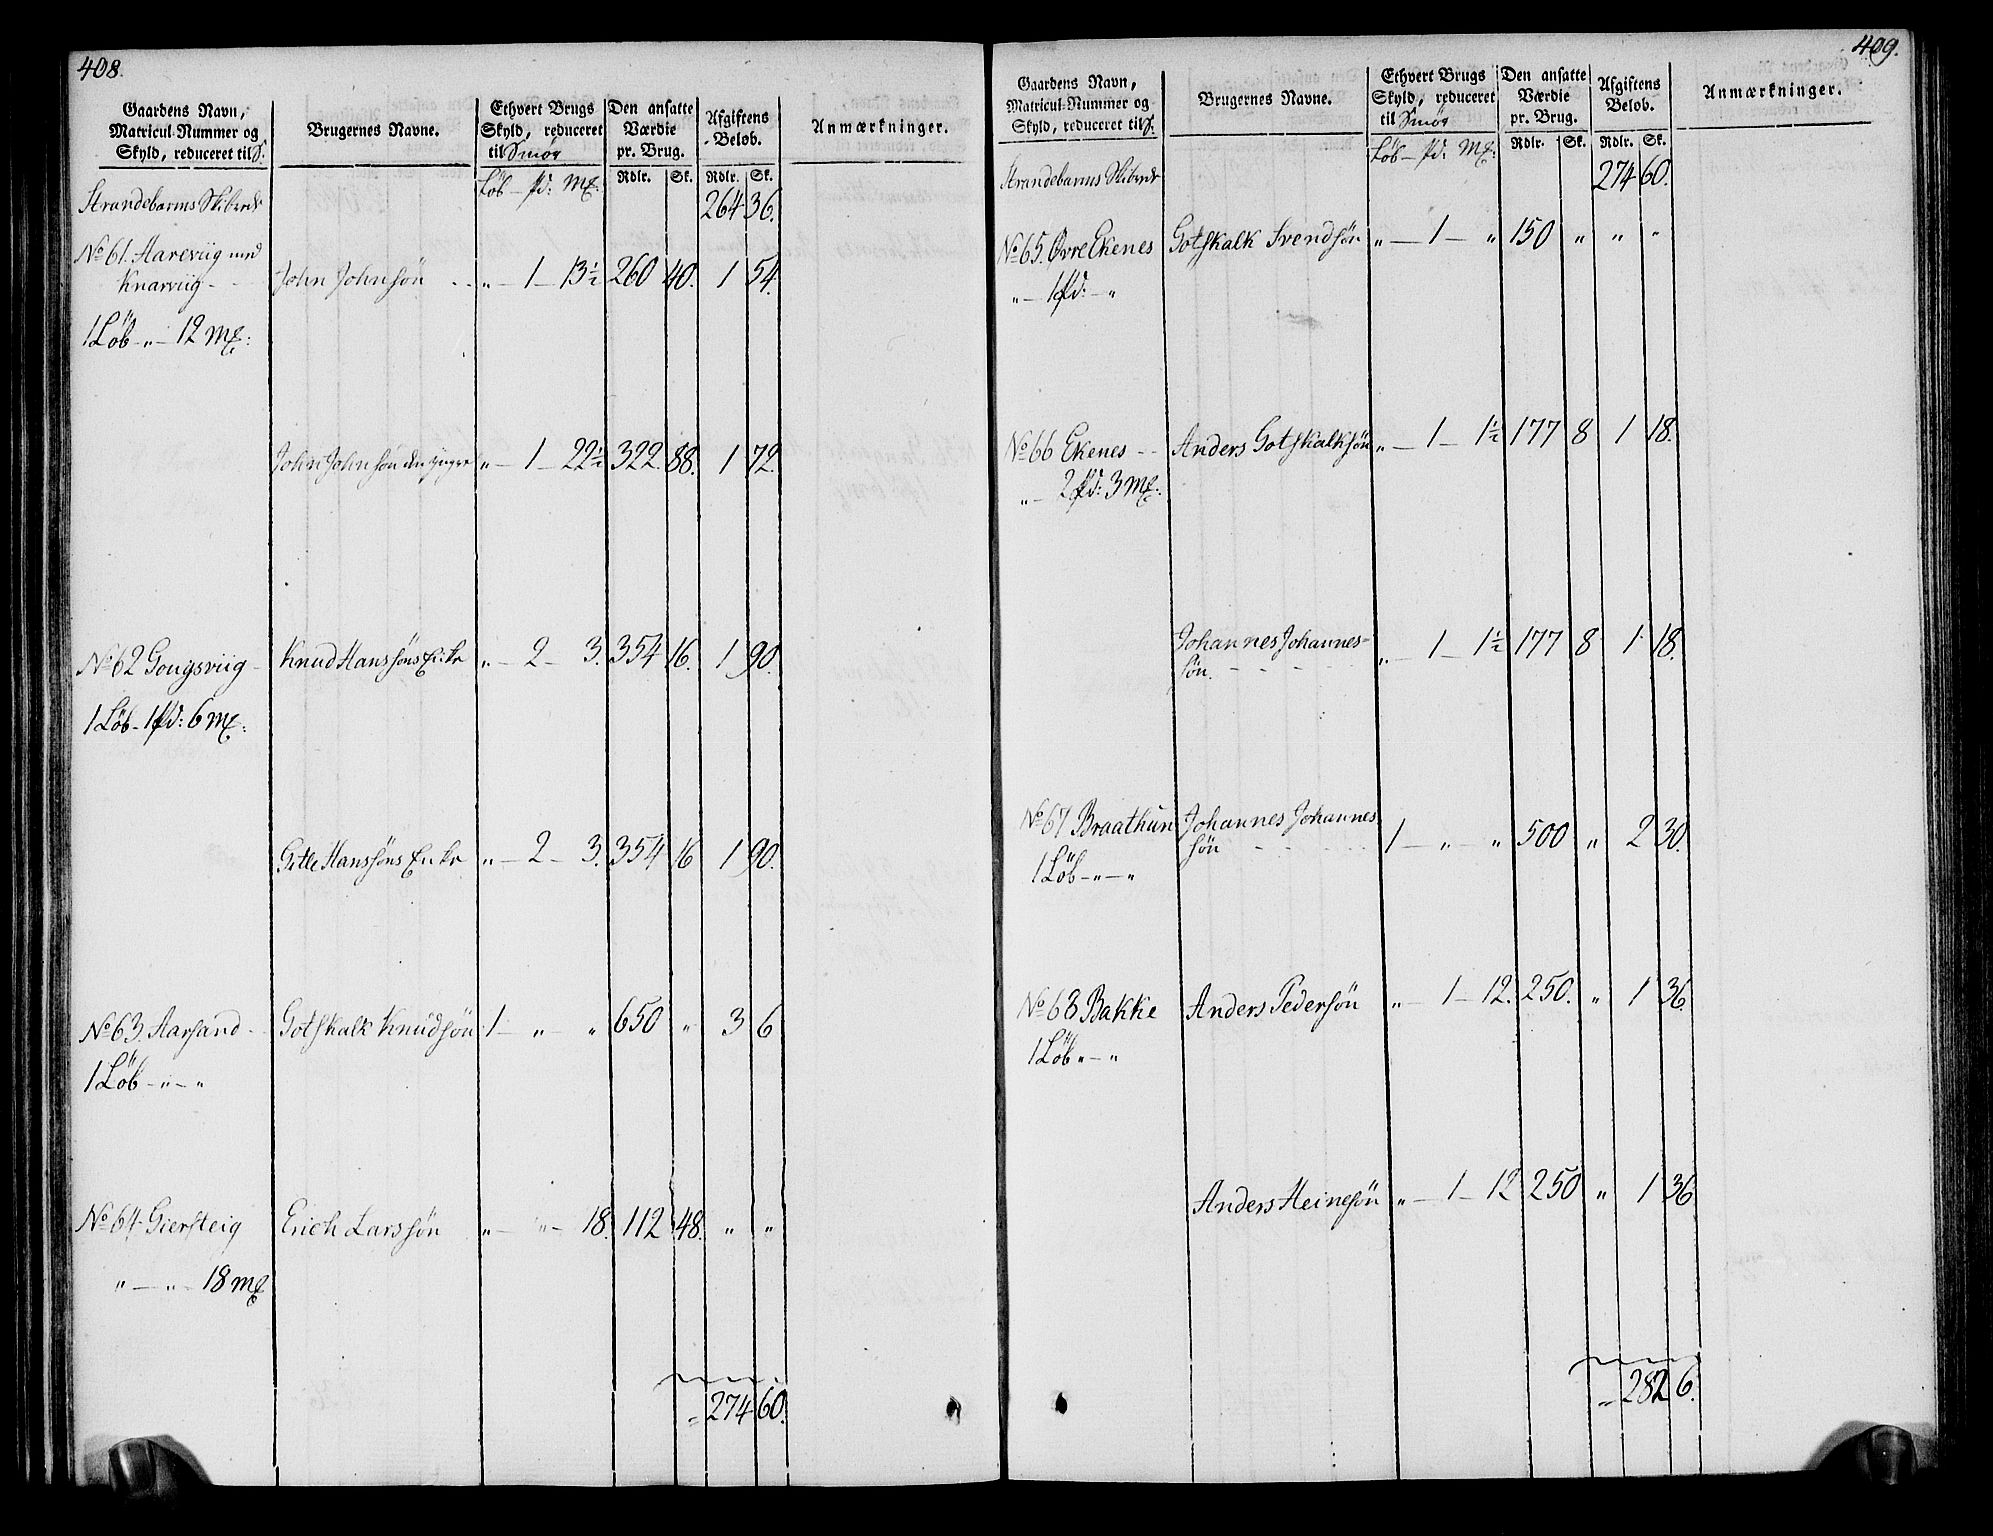 408.
Gaardens Navn, Matricul-Nummer og Skyld, reduceret til S. | Brugernes Navne. | Ethvert Brugs Skyld, reduceret til Smör | Den ansatte Værdie pr. Brug. | Afgiftens Beløb. | Anmærkninger.
Löb — pd: Mk: | Rdlr. | Sk. | Rdlr. | Sk.
Strandebarms Skibrede 264 36.
No 61. Aareviig med
Knarviig - John Johnsön „ — 1 — 13½ 260 40. 1 54.
1 Löb „ — 12 Mk:
John Johnsön den yngre „ — 1 — 22½ 322. 88. 1 72.
No 62 Gougsviig - Knud Hanssöns Enke „ — 2 — 3. 354 16. 1 90.
1 Löb - 1 pd: 6 Mk:
Gitle Hanssöns Enke „ — 2 — 3. 354 16 1 90.
No 63. Aarsand - Gotskalk Knudsön 1 — „ — „ 650 „ 3 6
1 Löb — „ — „
No 64 Giersteig Erich Larssön „ — „ — 18. 112 48. „ „
„ — „ — 18 Mk
274 60.
409.
Gaardens Navn, Matricul-Nummer og Skyld, reduceret til S. | Brugernes Navne. | Ethvert Brugs Skyld, reduceret til Smör | Den ansatte Værdie pr. Brug. | Afgiftens Beløb. | Anmærkninger.
Löb — pd: Mk: | Rdlr. | Sk. | Rdlr. | Sk.
Strandebarms Skibrede 274 60.
No 65. Øvre Ekenes Gotskalk Svendsön „ — 1 — „ 150 „ „ „
„ — 1 pd: — „
No 66 Ekenes - - Anders Gotskalksön „ — 1 — 1½ 177 8 1 18.
„ — 2 pd: 3 Mk:
Johannes Johannes-
sön. „ — 1 — 1½ 177 8 1 18.
No 67 Braathun Johannes Johannes
sön 1 — „ „ 500 „ 2 30.
1 Löb — „ — „
No 68 Bakke Anders Pedersön „ — 1 — 12. 250. „ 1 36.
1 Löb „ — „
Anders Heinesön „ — 1 — 12 250 „ 1 36
282 6.